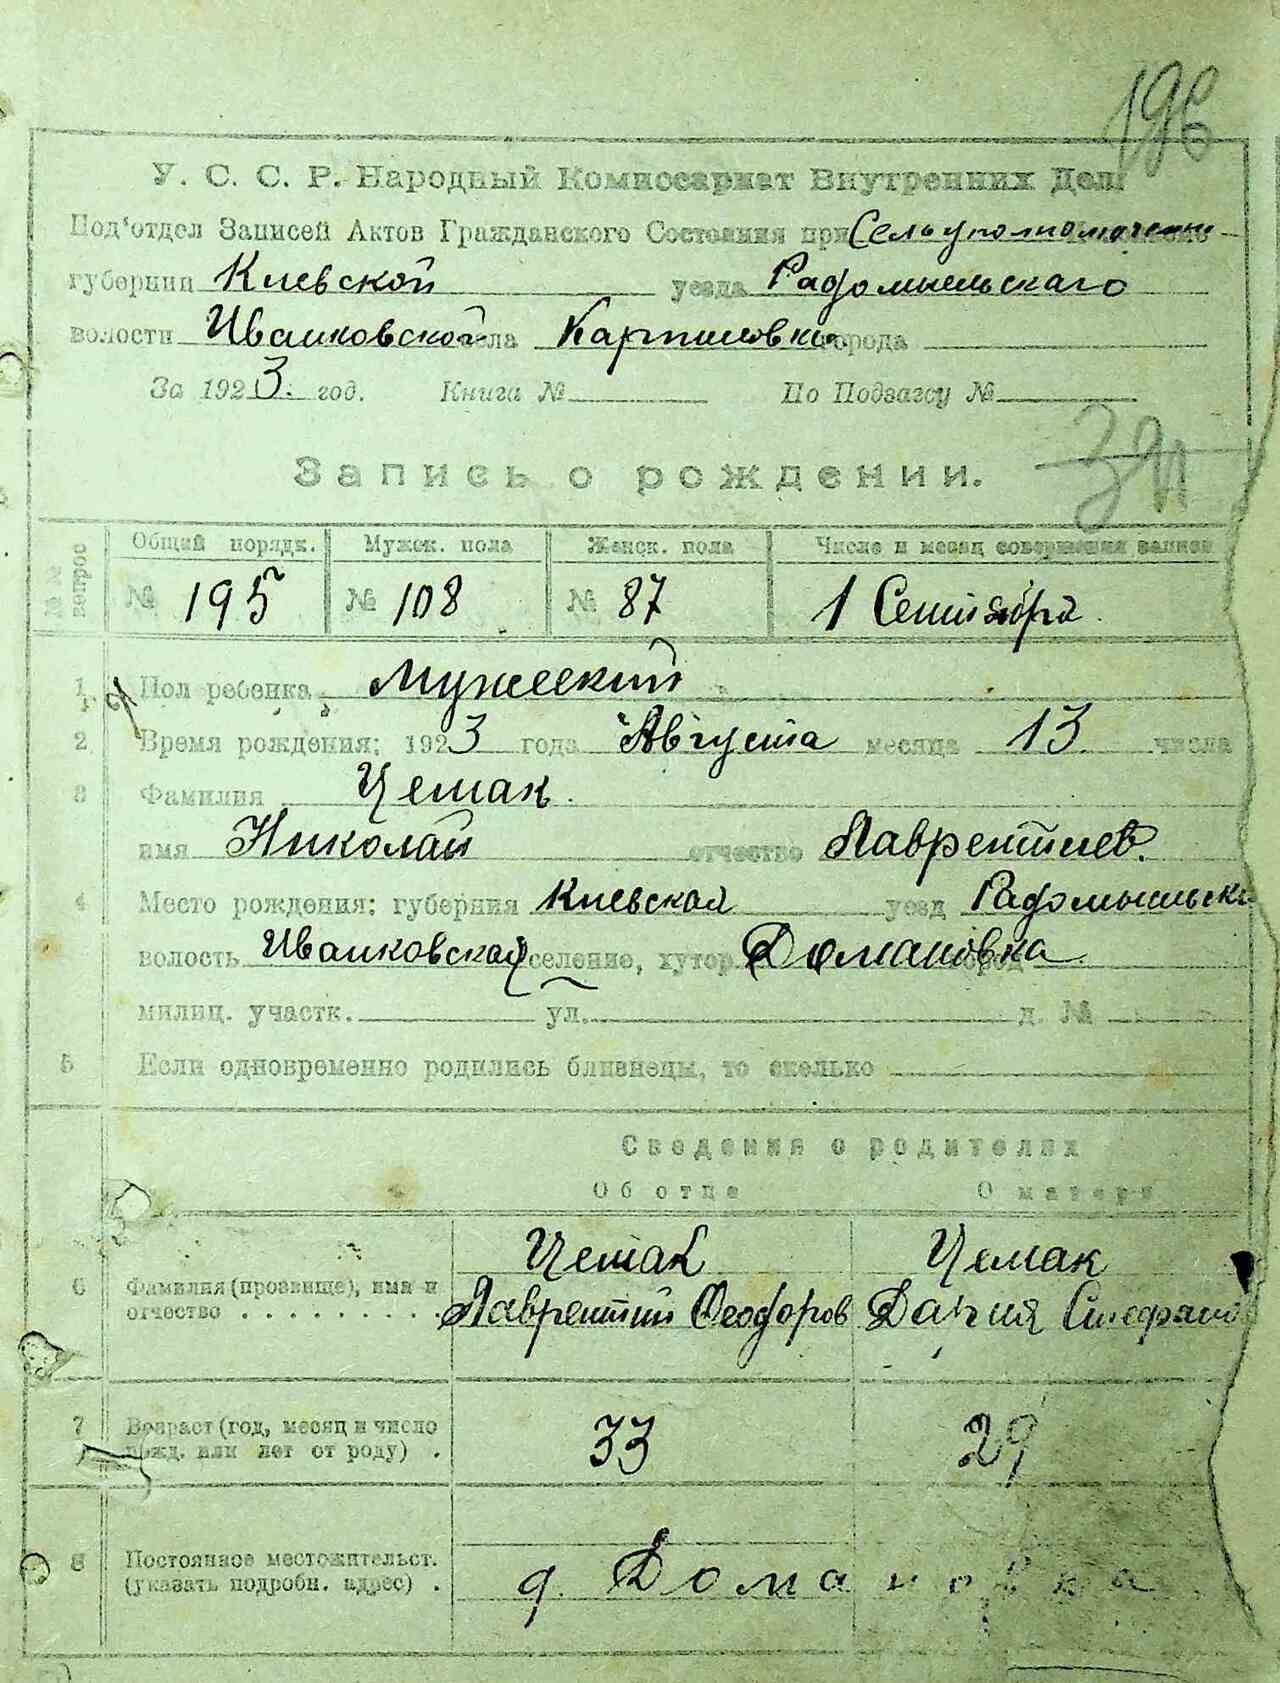 196
У. С. С. Р. Народный Комиссариат Внутренних Дел
Под'отдел Записей Актов Гражданского Состояния при Сельуполномочен
губернии Киевской уезда Радомысльскаго
волости Иванковской села Карпиловки города
За 1923. год. Книга № По Подзагсу №
Запись о рождении.
№№ вопрос Общий порядк. Мужск. пола Женск. пола Число и месяц совершения записи
№ 195 № 108 № 87 1 Сентября
1 Пол ребенка Мужеский
2 Время рождения: 1923 года Августа месяца 13 числа
3 Фамилия Цемак.
имя Николай отчество Лаврентиев.
4 Место рождения: губерния Киевская уезд Радомысльск
волость Иванковская селение, хутор Домановка город
милиц. участк. ул. д. №
5 Если одновременно родились близнецы, то сколько
Сведения о родителях
Об отце О матери
Цемак Цемак
6 Фамилия (прозвище), имя и
отчество . . . . . . . . Лаврентий Феодоров Дария Стефанов
7 Возраст (год, месяц и число
рожд. или лет от роду) . 33 29
8 Постоянное местожительст.
(указать подробн. адрес) . д. Домановка